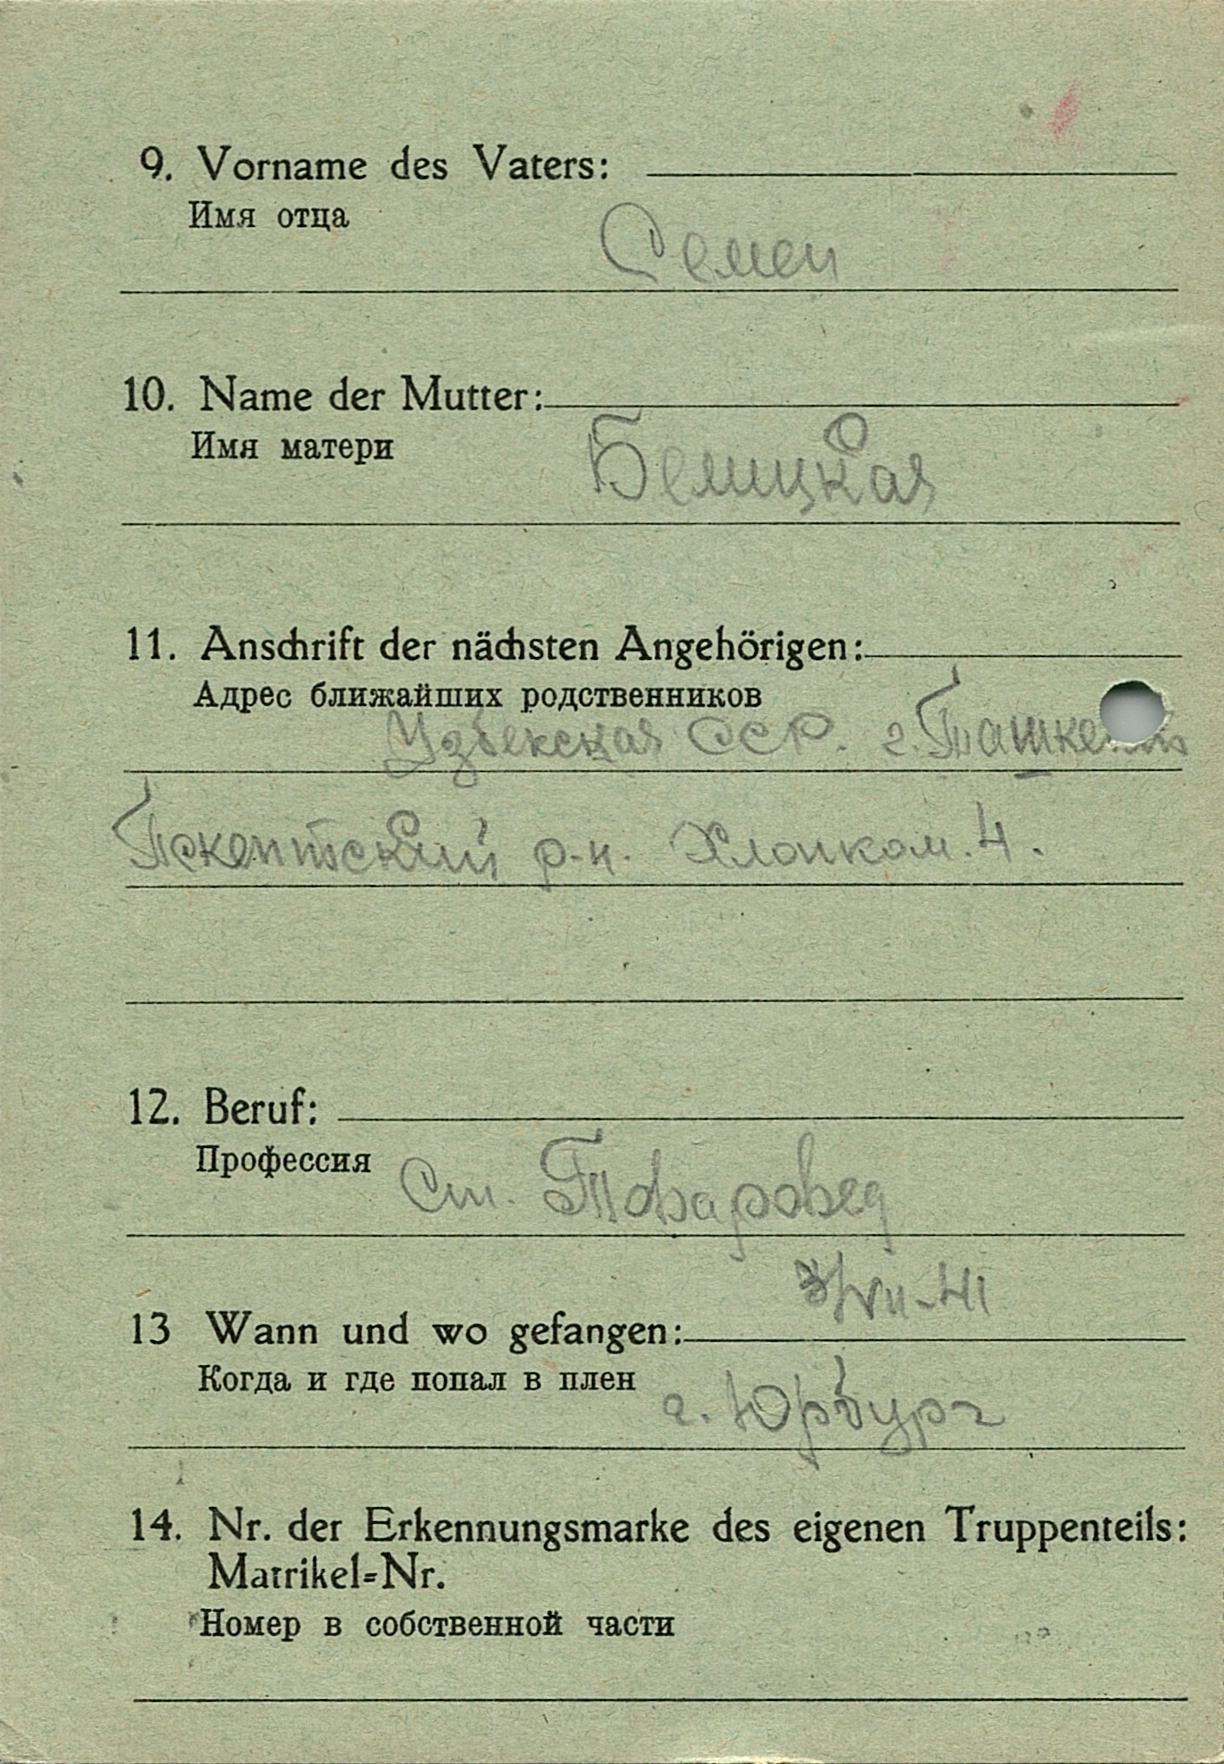 9. Vorname des Vaters:
Имя отца
Семен
10. Name der Mutter:
Имя матери
Белицкая
11. Anschrift der nächsten Angehörigen:
Адрес ближайших родственников
Узбекская ССР. г. Ташкент
Пскентский р-н. Хлопком. 4.
12. Beruf:
Профессия
Ст. Товаровед
3/VII-41
13 Wann und wo gefangen:
Когда и где попал в плен
г. Юрбург
14. Nr. der Erkennungsmarke des eigenen Truppenteils:
Matrikel=Nr.
Номер в собственной части